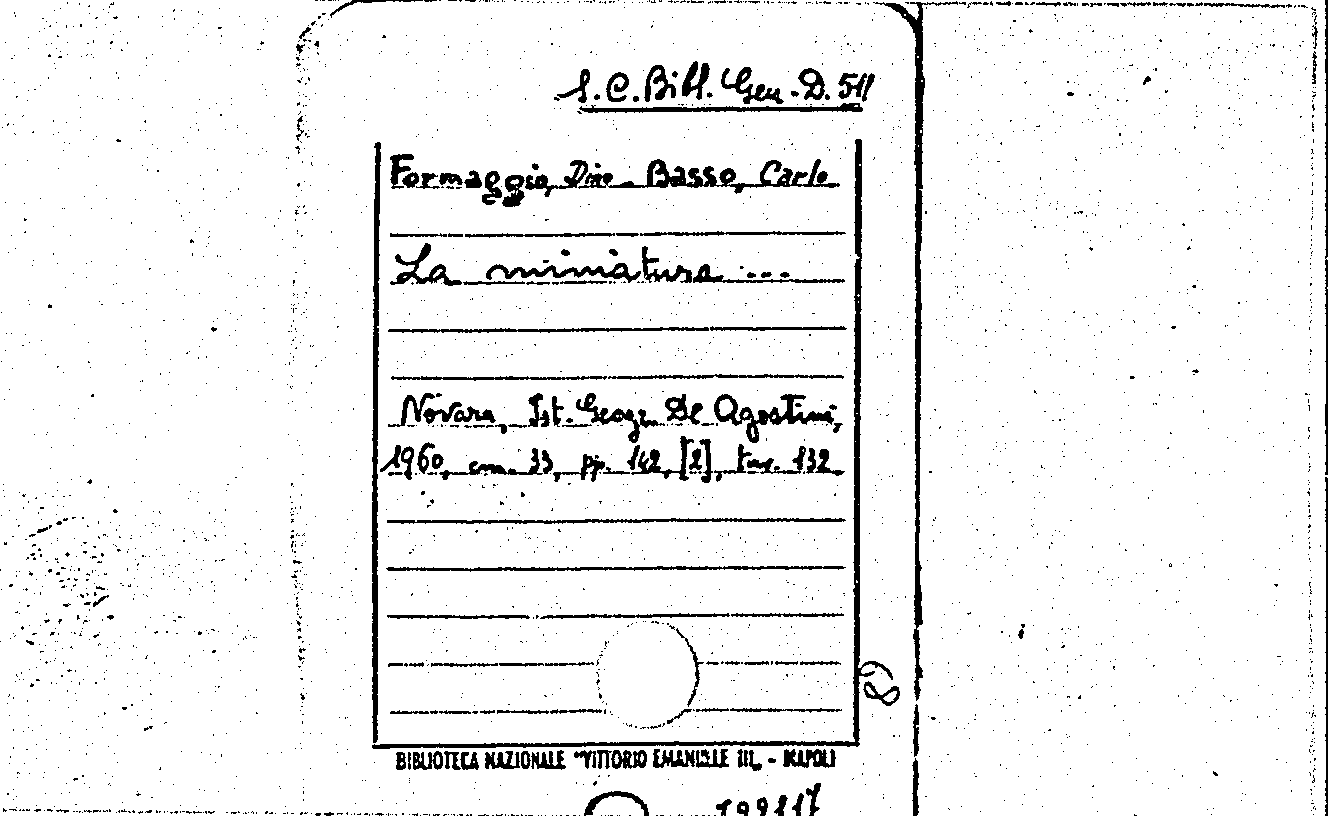 S.C. Bibl. Gen. D. 511
Formaggio, Dino - Basso, Carlo
La miniatura ...
Novara, Ist. Geogr. De Agostini,
1960, cm. 33, pp. 142, [2], tav. 132.
BIBLIOTECA NAZIONALE "VITTORIO EMANUELE III„ - NAPOLI